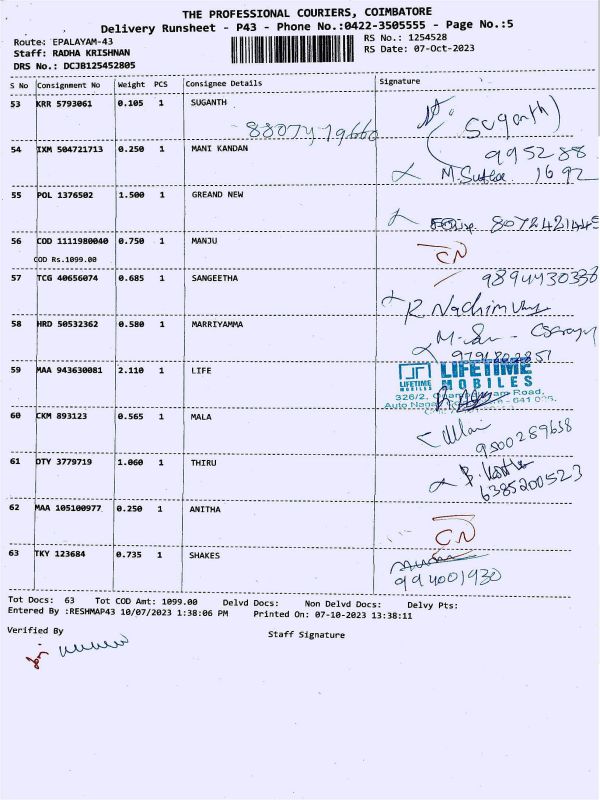 THE PROFESSIONAL COURIERS, COIMBATORE
Delivery Runsheet - P43 - Phone No.:0422-3505555 - Page No.:5
Route: EPALAYAM-43
RS No.: 1254528
Staff: RADHA KRISHNAN
RS Date: 07-Oct-2023
DRS No.: DCJB125452805
S No Consignment No Weight PCS Consignee Details Signature
53 KRR 5793061 0.105 1 SUGANTH
(Suganth)
54 IXM 504721713 0.250 1 MANI KANDAN
995288
1692
55 POL 1376502 1.500 1 GREAND NEW
8072421445
56 COD 1111980040 0.750 1 MANJU
CN
COD Rs.1099.00
57 TCG 40656074 0.685 1 SANGEETHA
9894430338
58 HRD 50532362 0.580 1 MARRIYAMMA
59 MAA 943630081 2.110 1 LIFE
LIFETIME MOBILES
LIFETIME
MOBILES
326/2, Road,
Auto Nagar 641
60 CKM 893123 0.565 1 MALA
9500289658
61 OTY 3779719 1.060 1 THIRU
6385200523
62 MAA 105100977 0.250 1 ANITHA
CN
63 TKY 123684 0.735 1 SHAKES
994001930
Tot Docs: 63 Tot COD Amt: 1099.00 Delvd Docs: Non Delvd Docs: Delvy Pts:
Entered By :RESHMAP43 10/07/2023 1:38:06 PM Printed On: 07-10-2023 13:38:11
Verified By
Staff Signature